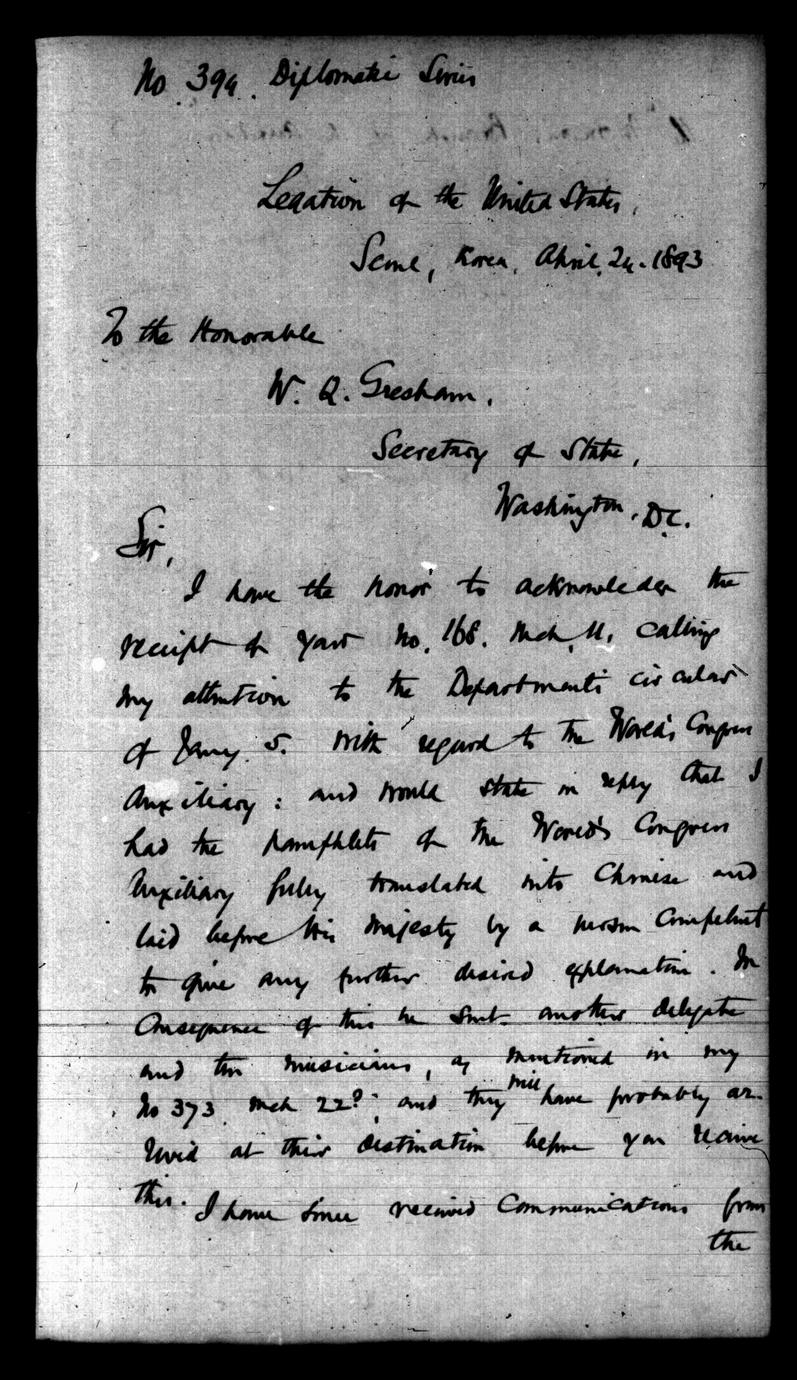 No 394. Diplomatic Series
Legation of the United States,
Seoul, Korea, April 24. 1893
To the Honorable
W. Q. Gresham,
Secretary of State,
Washington, D.C.
Sir,
I have the honor to acknowledge the
receipt of your No. 168. Mch. 11, calling
my attention to the Department's circular
of Jany. 5. with regard to the World's Congress
Auxiliary: and would state in reply that I
had the pamphlets of the World's Congress
Auxiliary fully translated into Chinese and
laid before His Majesty by a person competent
to give any further desired explanation. In
consequence of this he sent another delegate
and ten musicians, as mentioned in my
No 373 Mch 22d; and they will have probably ar-
rived at their destination before you receive
this. I have since received communications from
the